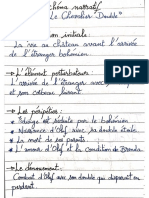 Schéma narratif
"Le Chevalier Double"
ion initiale:
La vie au château avant l'arrivée
de l'étranger bohémien
→ L'élément perturbateur
L'arrivée de l'étranger avec
son corbeau
→ Les péripéties:
Edwige est séduite par le bohémien
Naissance d'Oluf avec sa double étoile
La mort de ses parents
L'amour d'Oluf et la condition de Brenda
→ Le dénouement:
Combat d'Oluf avec son double qui disparaît en
perdant.